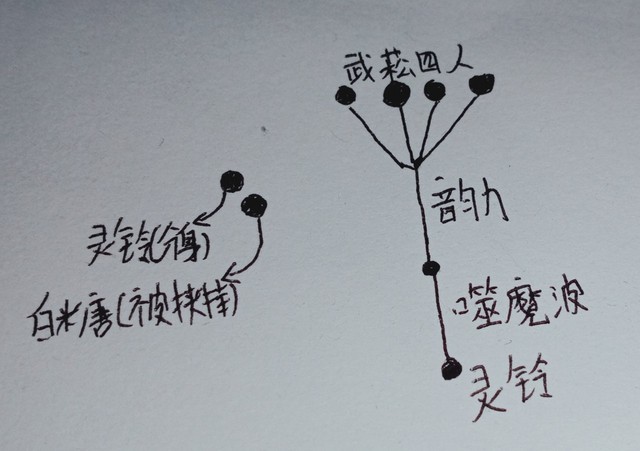 武菘四人
韵力
噬魔波
灵铃
灵铃(分身)
白米唐(被挟持)